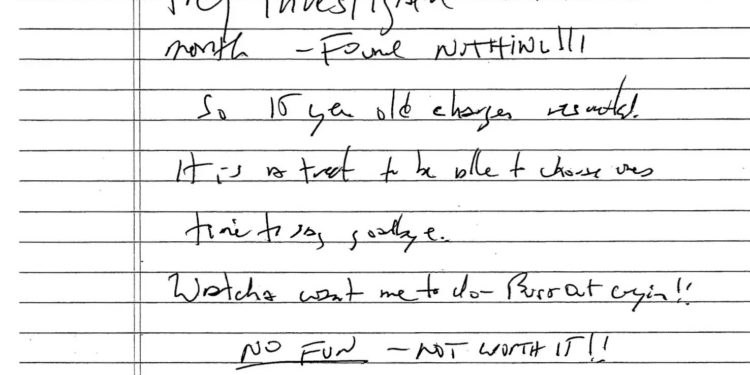 month - FOUND NOTHING!!!
So 15 year old charges resulted.
It is a treat to be able to choose one's
time to say goodbye.
Watcha want me to do - Burst out cryin!!
NO FUN - NOT WORTH IT!!